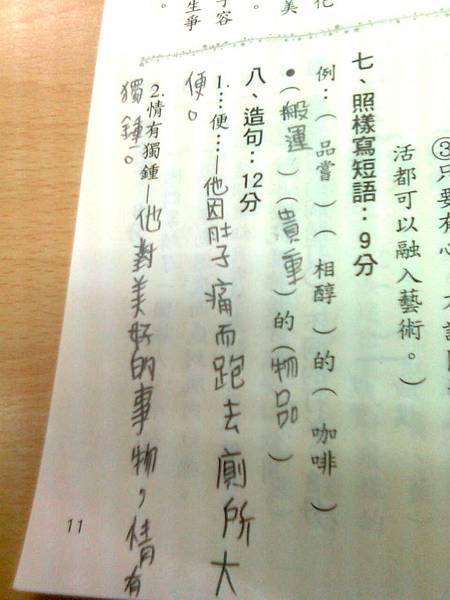 ③只要有心，
活都可以融入藝術。）
七、照樣寫短語：9分
例：（品嘗）（相醇）的（咖啡）
•（搬運）（貴重）的（物品）
八、造句：12分
1.…便…—他因肚子痛而跑去廁所大
便。
2.情有獨鍾—他對美好的事物，情有
獨鍾。
化
美
。
容
生爭
。
11